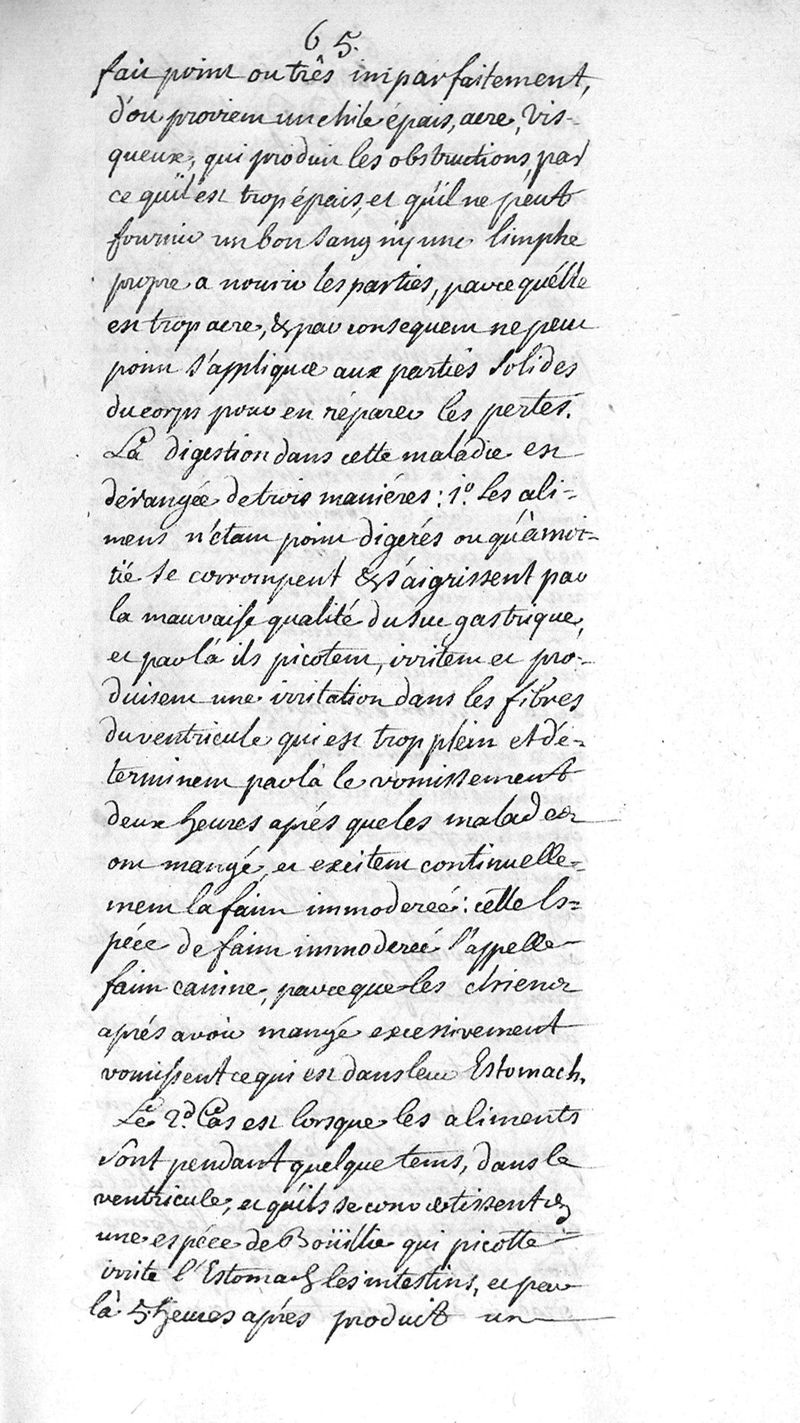 65.
fait point ou três imparfaitement,
d'ou provient un chile épais, acre, vis-
queux, qui produit les obstructions, par
ce qu'il est trop épais, et qu'il ne peut
fournir un bon sang ny une limphe
propre a nourir les parties, parce qu'élle
est trop acre, & par consequent ne peut
point s'appliquer aux parties solides
du corps pour en réparer les pertes.
La digestion dans cette maladie est
dérangée de trois maniéres: 1.º les ali-
mens n'étant point digerés ou qu'à moi-
tié se corrompent & s'aigrissent par
la mauvaise qualité du suc gastrique,
et par là ils picotent, irritent et pro-
duisent une irritation dans les fibres
du ventricule qui est trop plein et dé-
terminent par là le vomissement
deux heures aprés que les malades
ont mangé, et excitent continuelle-
ment la faim immoderée: cette es-
péce de faim immoderée s'appelle
faim canine, parceque les chiens
aprés avoir mangé excessivement
vomissent ce qui est dans leur Estomach.
Le 2.d Cas est lorsque les aliments
sônt pendant quelque tems, dans le
ventricule, et qu'ils se convertissent en
une espéce de Boüillie qui picotte
irrite l'Estomac & les intestins, et par
là 5 heures aprés produit un